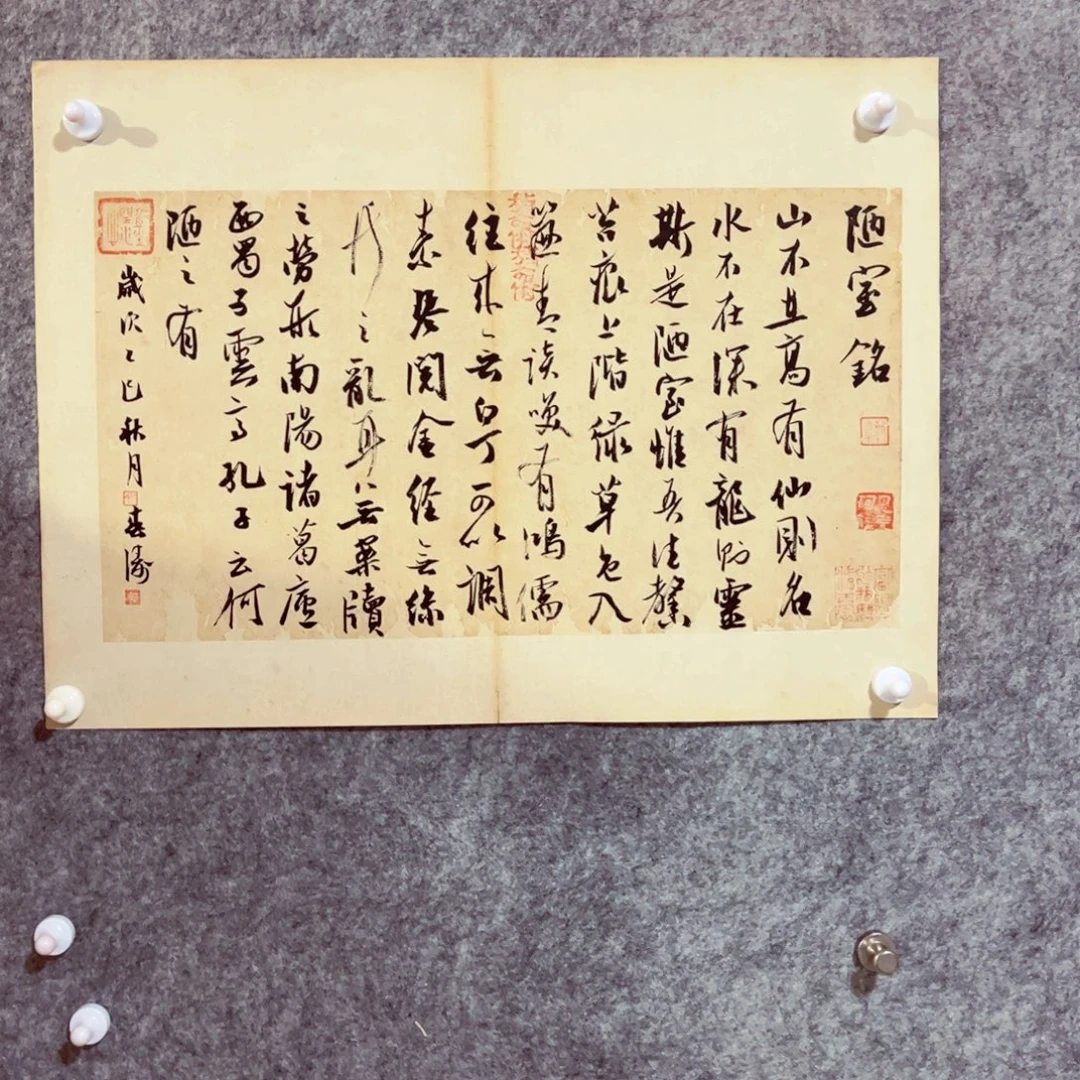 陋室銘
山不在高有仙則名
水不在深有龍則靈
斯是陋室惟吾德馨
苔痕上階綠草色入
簾青談笑有鴻儒
往来无白丁可以調
素琴閱金經無絲
竹之亂耳無案牘
之勞形南陽諸葛廬
西蜀子雲亭孔子云何
陋之有
歲次乙巳秋月